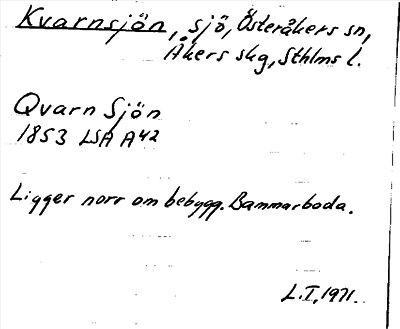 Kvarnsjön, sjö, Österåkers sn,
Åkers skg, Sthlms l.
Qvarn Sjön
1853 LSA A42
Ligger norr om bebygg. Bammarboda.
L.I. 1971.